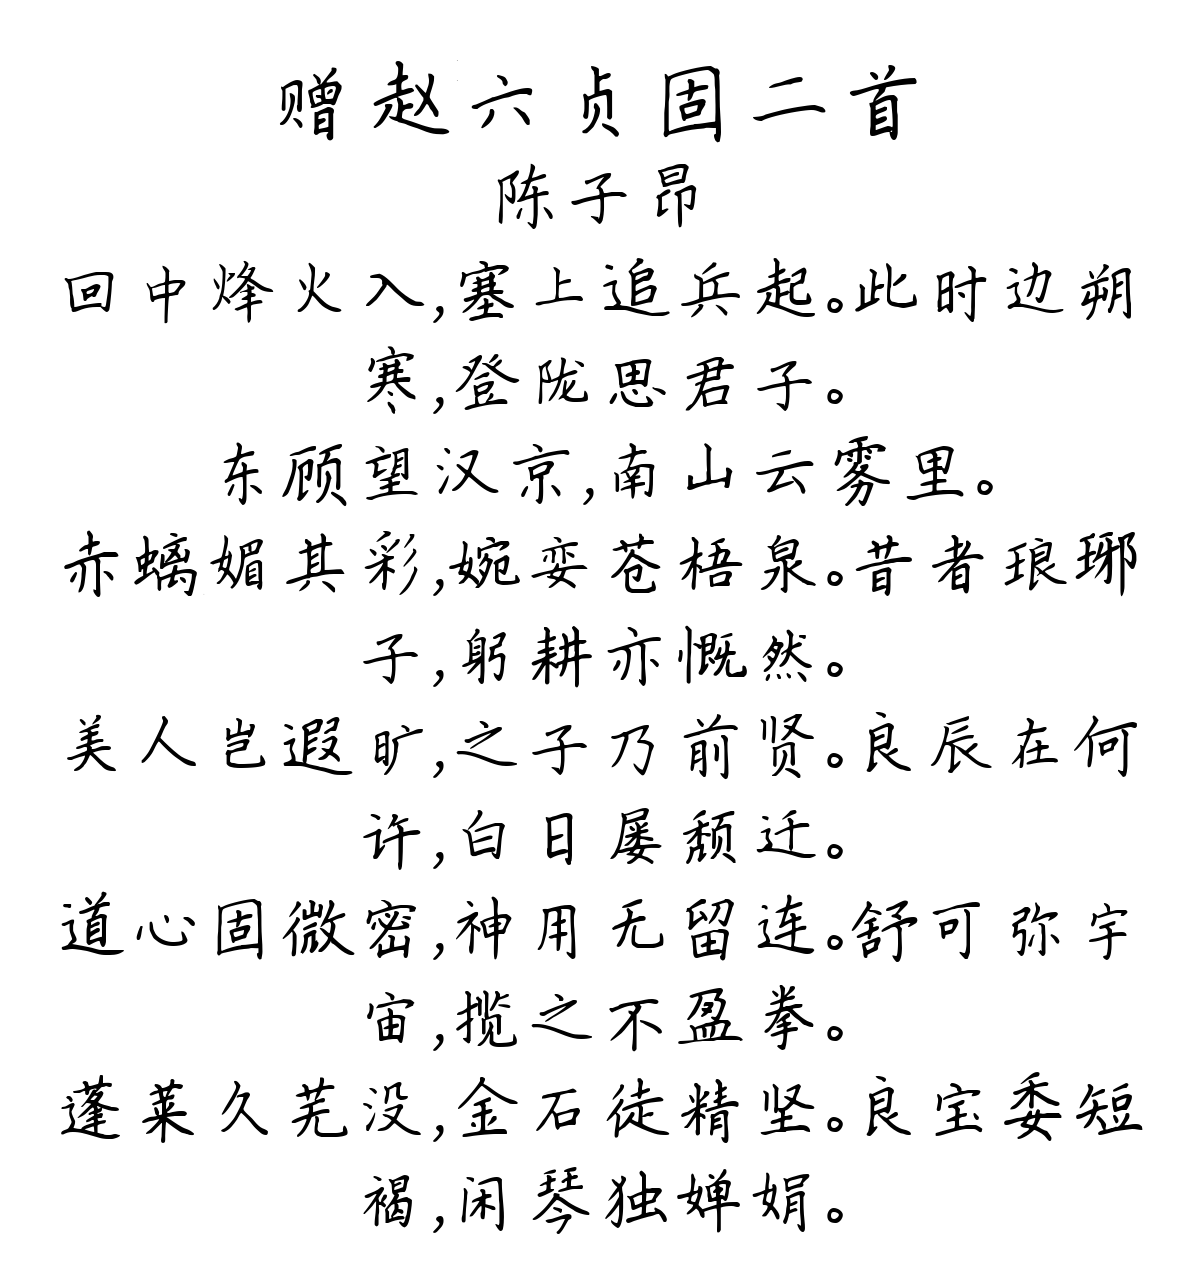 赠赵六贞固二首
陈子昂
回中烽火入,塞上追兵起。此时边朔
寒,登陇思君子。
东顾望汉京,南山云雾里。
赤螭媚其彩,婉娈苍梧泉。昔者琅琊
子,躬耕亦慨然。
美人岂遐旷,之子乃前贤。良辰在何
许,白日屡颓迁。
道心固微密,神用无留连。舒可弥宇
宙,揽之不盈拳。
蓬莱久芜没,金石徒精坚。良宝委短
褐,闲琴独婵娟。